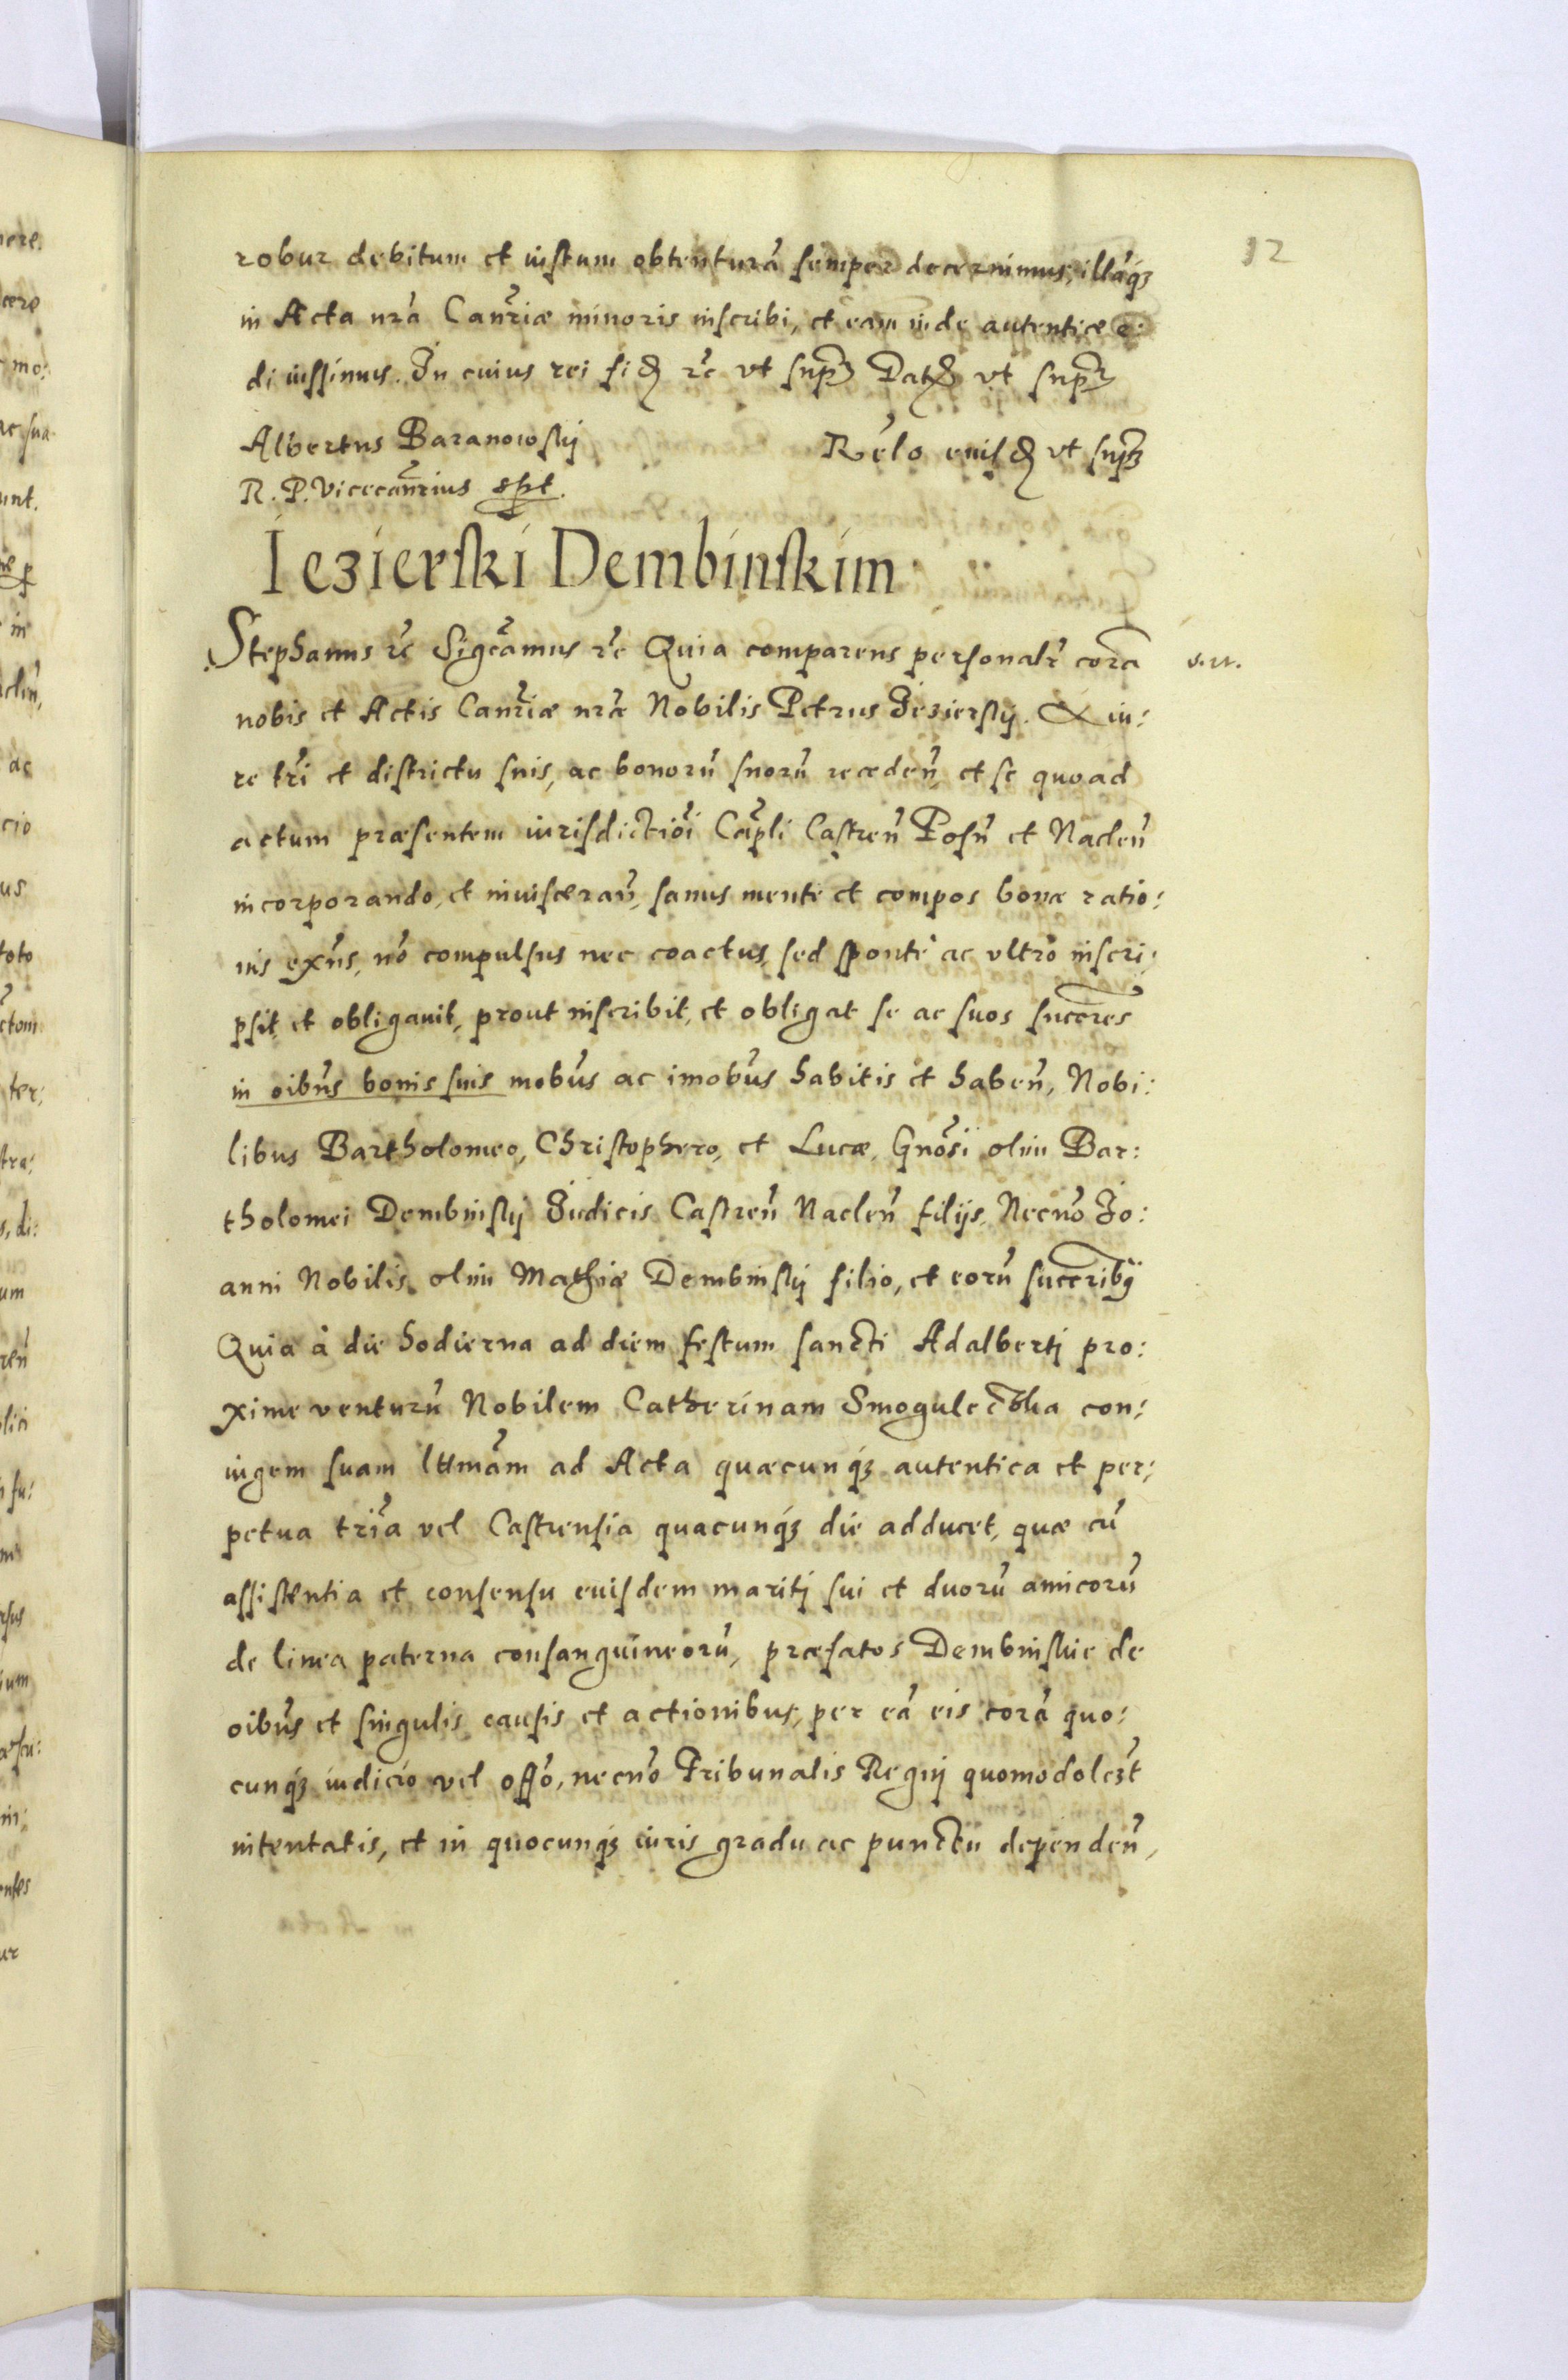 12
robur debitum et iustum obtenturã semper decernimus, illãqʒ
in Acta nrã Canriæ minoris inscribi, et eam inde autenticæ e:
di iussimus. In cuius rei fidē rc̃ vt supra Datū vt supra
Albertus Baranowskj
R. P. Vicecanrius sspt.
Relo eiusdē vt supra
Iezierski Dembinskim
Stephanus rc̃ Sigcamus rc̃ Quia comparens personalr̃ corã
s. n.
nobis et Actis Canriæ nræ Nobilis Petrus Jezierskj. Ex iu:
re tri et districtu suis, ac bonorũ suorũ receden̄, et se quoad
actum præsentem iurisdictioi Capli Castren̄ Posn̄ et Naclen̄
incorporando, et inuisceran̄, sanus mente et compos bonæ ratio:
nis exñs, nõ compulsus nec coactus, sed sponte ac vltrò inscri:
psit et obligauit, prout inscribit, et obligat se ac suos succres
in oibus bonis suis mobus ac imobus habitis et haben̄, Nobi:
libus Bartholomeo, Christophero, et Lucæ, Gnosi olim Bar:
tholomei Dembinskj Judicis Castren̄ Naclen̄ filijs, Necno Jo:
anni Nobilis olim Mathiæ Dembinskj filio, et eorũ succeribq
Quia à die hodierna ad diem festum sancti Adalbertj pro:
xime venturũ Nobilem Catherinam Smogulecka con:
iugem suam lttmam ad Acta quæcunqʒ autentica et per:
petua tria vel Castrensia quacunqʒ die adducet, quæ cũ
assistentia et consensu euisdem maritj sui et duorũ amicorũ
de linea paterna consanguineorũ, præfatos Dembinskie de
oibus et singulis causis et actionibus, per eã eis corã quo:
cunqʒ iudicio vel offo, necno Tribunalis Regnj quomodolezt
intentatis, et in quocunqʒ iuris gradu ac punctu dependen̄,